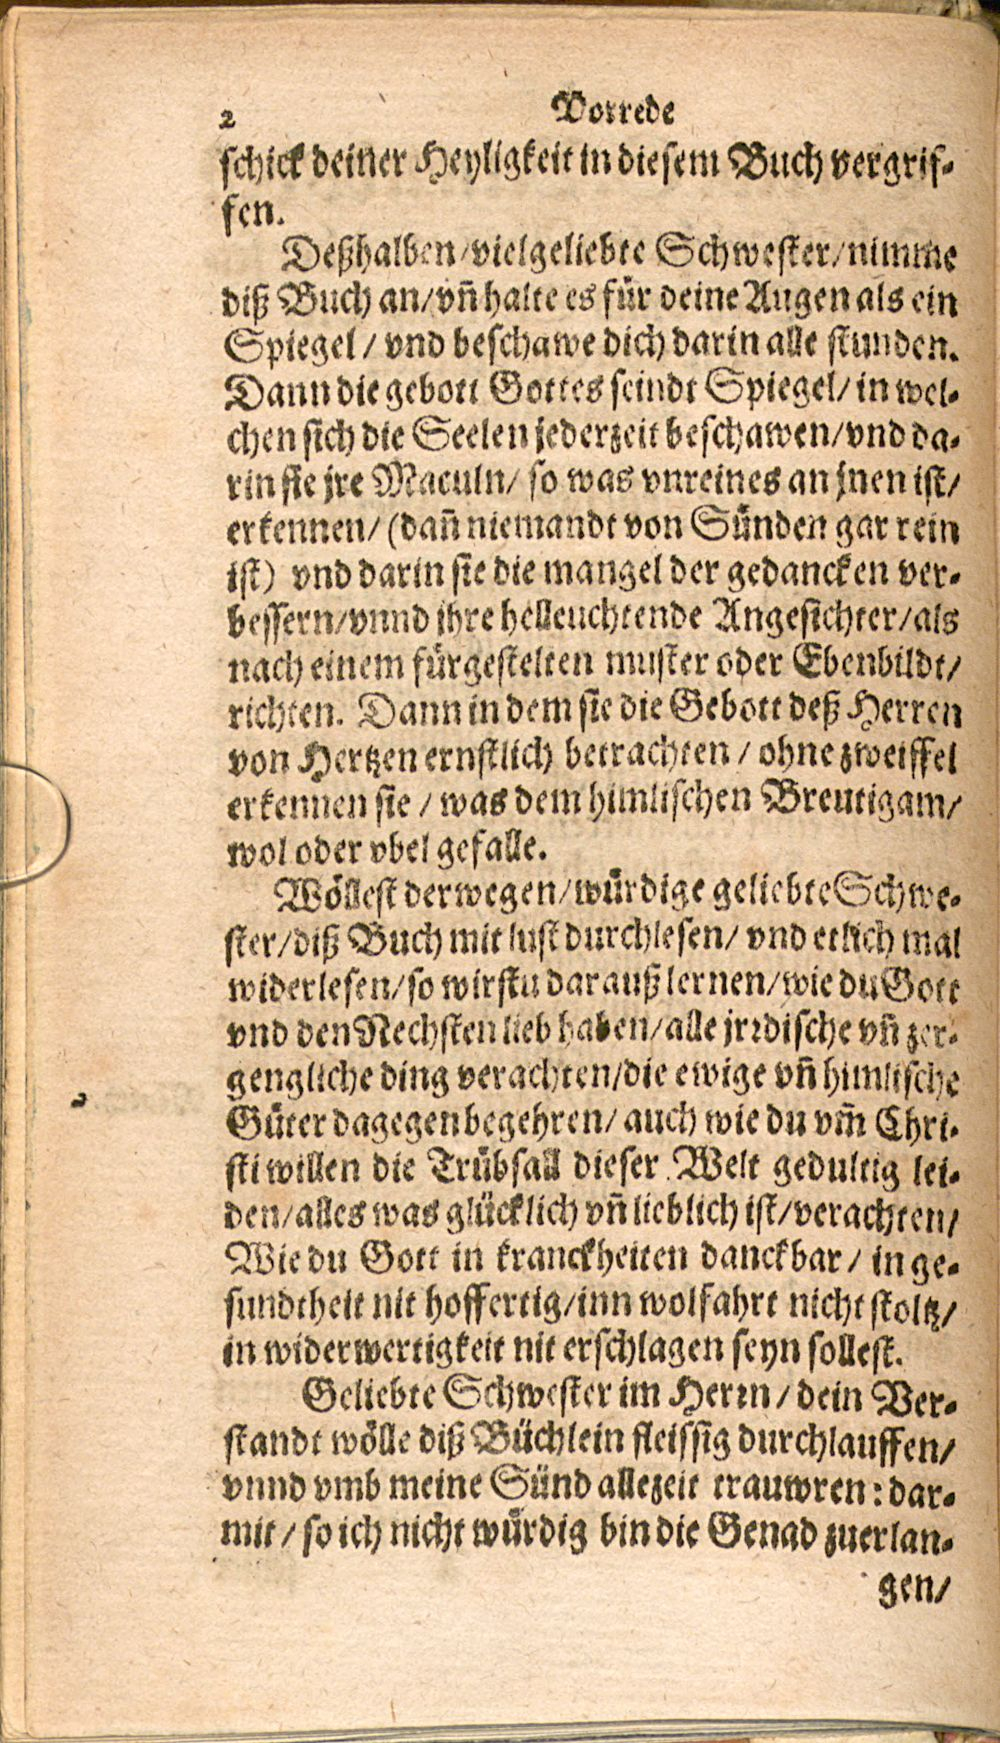 2 Vorrede
schick deiner Heyligkeit in diesem Buch vergrif-
fen.
Deßhalben/vielgeliebte Schwester/nimme
diß Buch an/vn̄ halte es für deine Augen als ein
Spiegel/vnd beschawe dich darin alle stunden.
Dann die gebott Gottes seindt Spiegel/in wel-
chen sich die Seelen jederzeit beschawen/vnd da-
rin sie jre Maculn/so was vnreines an jnen ist/
erkennen/(dan̄ niemandt von Sünden gar rein
ist) vnd darin sie die mangel der gedancken ver-
bessern/vnnd ihre helleuchtende Angesichter/als
nach einem fürgestelten muster oder Ebenbildt/
richten. Dann in dem sie die Gebott deß Herren
von Hertzen ernstlich betrachten/ohne zweiffel
erkennen sie/was dem himlischen Breutigam/
wol oder vbel gefalle.
Wöllest derwegen/würdige geliebte Schwe-
ster/diß Buch mit lust durchlesen/vnd etlich mal
widerlesen/so wirstu darauß lernen/wie du Gott
vnd den Nechsten lieb haben/alle jrrdische vn̄ zer-
gengliche ding verachten/die ewige vn̄ himlische
Güter dagegen begehren/auch wie du vm̄ Chri-
sti willen die Trübsall dieser Welt gedultig lei-
den/alles was glücklich vn̄ lieblich ist/verachten/
Wie du Gott in kranckheiten danckbar/in ge-
sundtheit nit hoffertig/inn wolfahrt nicht stoltz/
in widerwertigkeit nit erschlagen seyn sollest.
Geliebte Schwester im Herrn/dein Ver-
standt wölle diß Büchlein fleissig durchlauffen/
vnnd vmb meine Sünd allezeit trauwren: dar-
mit/so ich nicht würdig bin die Genad zuerlan-
gen/